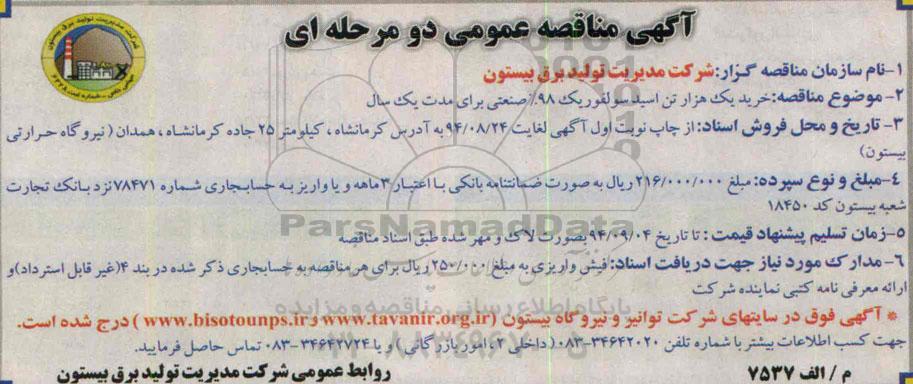 آگهی مناقصه عمومی دو مرحله ای
شرکت مدیریت تولید برق بیستون
۱-نام سازمان مناقصه گزار:شرکت مدیریت تولید برق بیستون
۲- موضوع مناقصه:خرید یک هزار تن اسید سولفوریک ۹۸٪ صنعتی برای مدت یک سال
۳- تاریخ و محل فروش اسناد: از چاپ نوبت اول آگهی لغایت ۹۴/۰۸/۲۴ به آدرس کرمانشاه ، کیلومتر ۲۵ جاده کرمانشاه ، همدان ( نیروگاه حرارتی
بیستون)
۴-مبلغ و نوع سپرده: مبلغ ۲۱۶/۰۰۰/۰۰۰ ریال به صورت ضمانتنامه بانکی با اعتبار ۳ماهه و یا واریز به حسابجاری شماره ۷۸۴۷۱ نزد بانک تجارت
شعبه بیستون کد ۱۸۴۵۰
ParsNamadData
۵-زمان تسلیم پیشنهاد قیمت : تا تاریخ ۹۴/۰۹/۰۴ بصورت لاک و مهر شده طبق اسناد مناقصه
۶-مدارک مورد نیاز جهت دریافت اسناد: فیش واریزی به مبلغ ۲۵۰/۰۰۰ ریال برای هر مناقصه به حسابجاری ذکر شده در بند ۴(غیر قابل استرداد)و
ارائه معرفی نامه کتبی نماینده شرکت
پایگاه اطلاع رسانی مناقصه و مزایده
* آگهی فوق در سایتهای شرکت توانیر و نیروگاه بیستون (www.tavanir.org.ir و www.bisotounps.ir ) درج شده است.
جهت کسب اطلاعات بیشتر با شماره تلفن ۳۴۶۴۲۰۲۰-۰۸۳ ( داخلی ۲ ، امور بازرگانی ) و یا ۳۴۶۴۲۷۲۴-۰۸۳ تماس حاصل فرمایید.
م / الف ۷۵۳۷
روابط عمومی شرکت مدیریت تولید برق بیستون